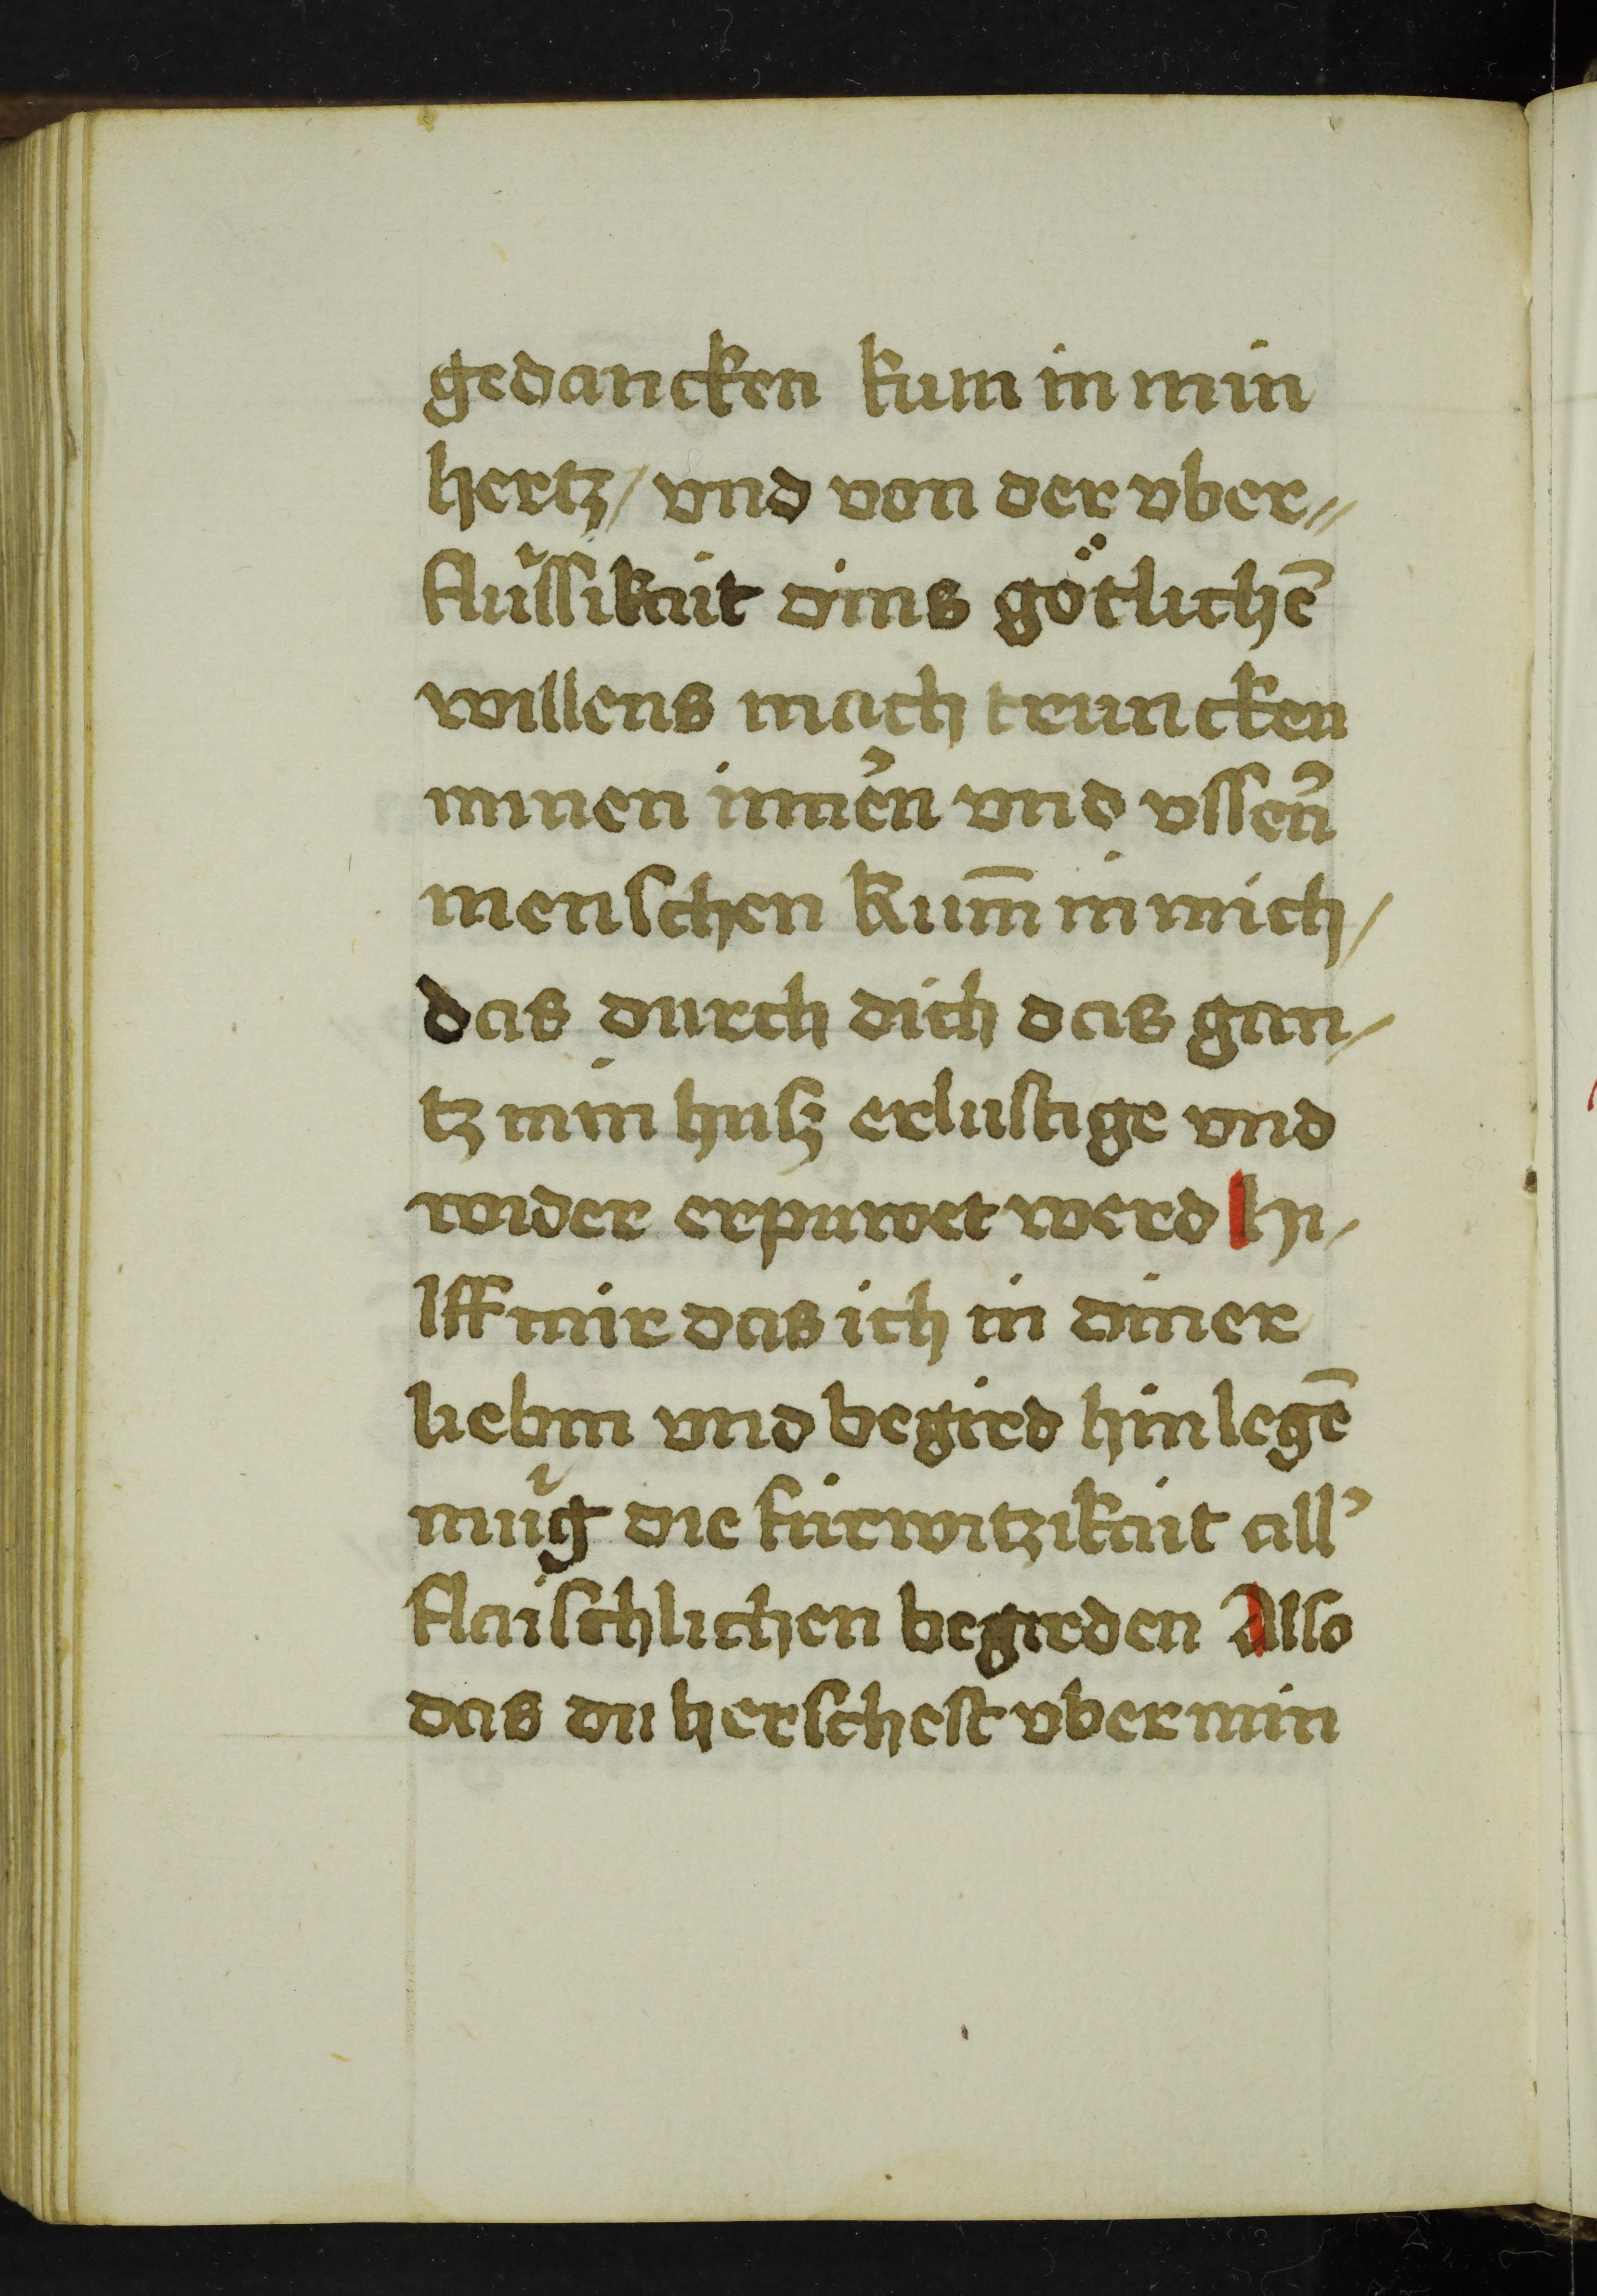 gedancken kum in min
hertz / vnd von der vber//
flu̓ssikait dins götlichē
willens mach truncken
minen inne᷒n vnd vssen᷒
menschen kum̄ in mich /
das durch dich das gan/
tz min husz erlustige vnd
wider erpuwet werd hi/
lff mir das ich in diner
liebin vnd begird hin legē
mu̓g die fürwitzikait all᷒
flaischlichen begirden Also
das du herschest vber min